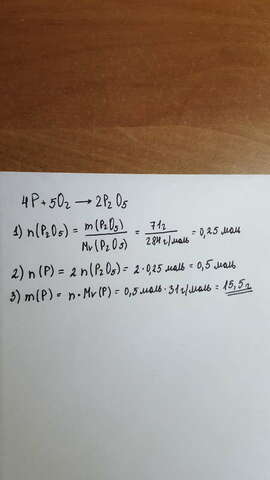 4P + 5O₂ → 2P₂O₅
1) n(P₂O₅) = m(P₂O₅) / Mv(P₂O₅) = 71г / 284 г/моль = 0,25 моль
2) n(P) = 2 n(P₂O₅) = 2 · 0,25 моль = 0,5 моль
3) m(P) = n · Mv(P) = 0,5 моль · 31 г/моль = 15,5 г